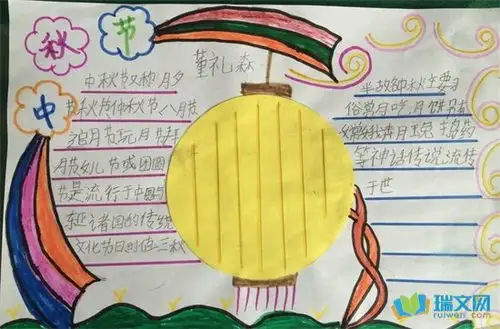 中
秋
节
董礼森
中秋节又称月夕
节秋节仲秋节八月节
追月节玩月节拜
月节女儿节或团圆
节是流行于中国与
东亚诸国的传统
文化节日时值三秋
半故
俗赏月吃月饼
等神话传说流传
于世
瑞文网
ruiwen.com